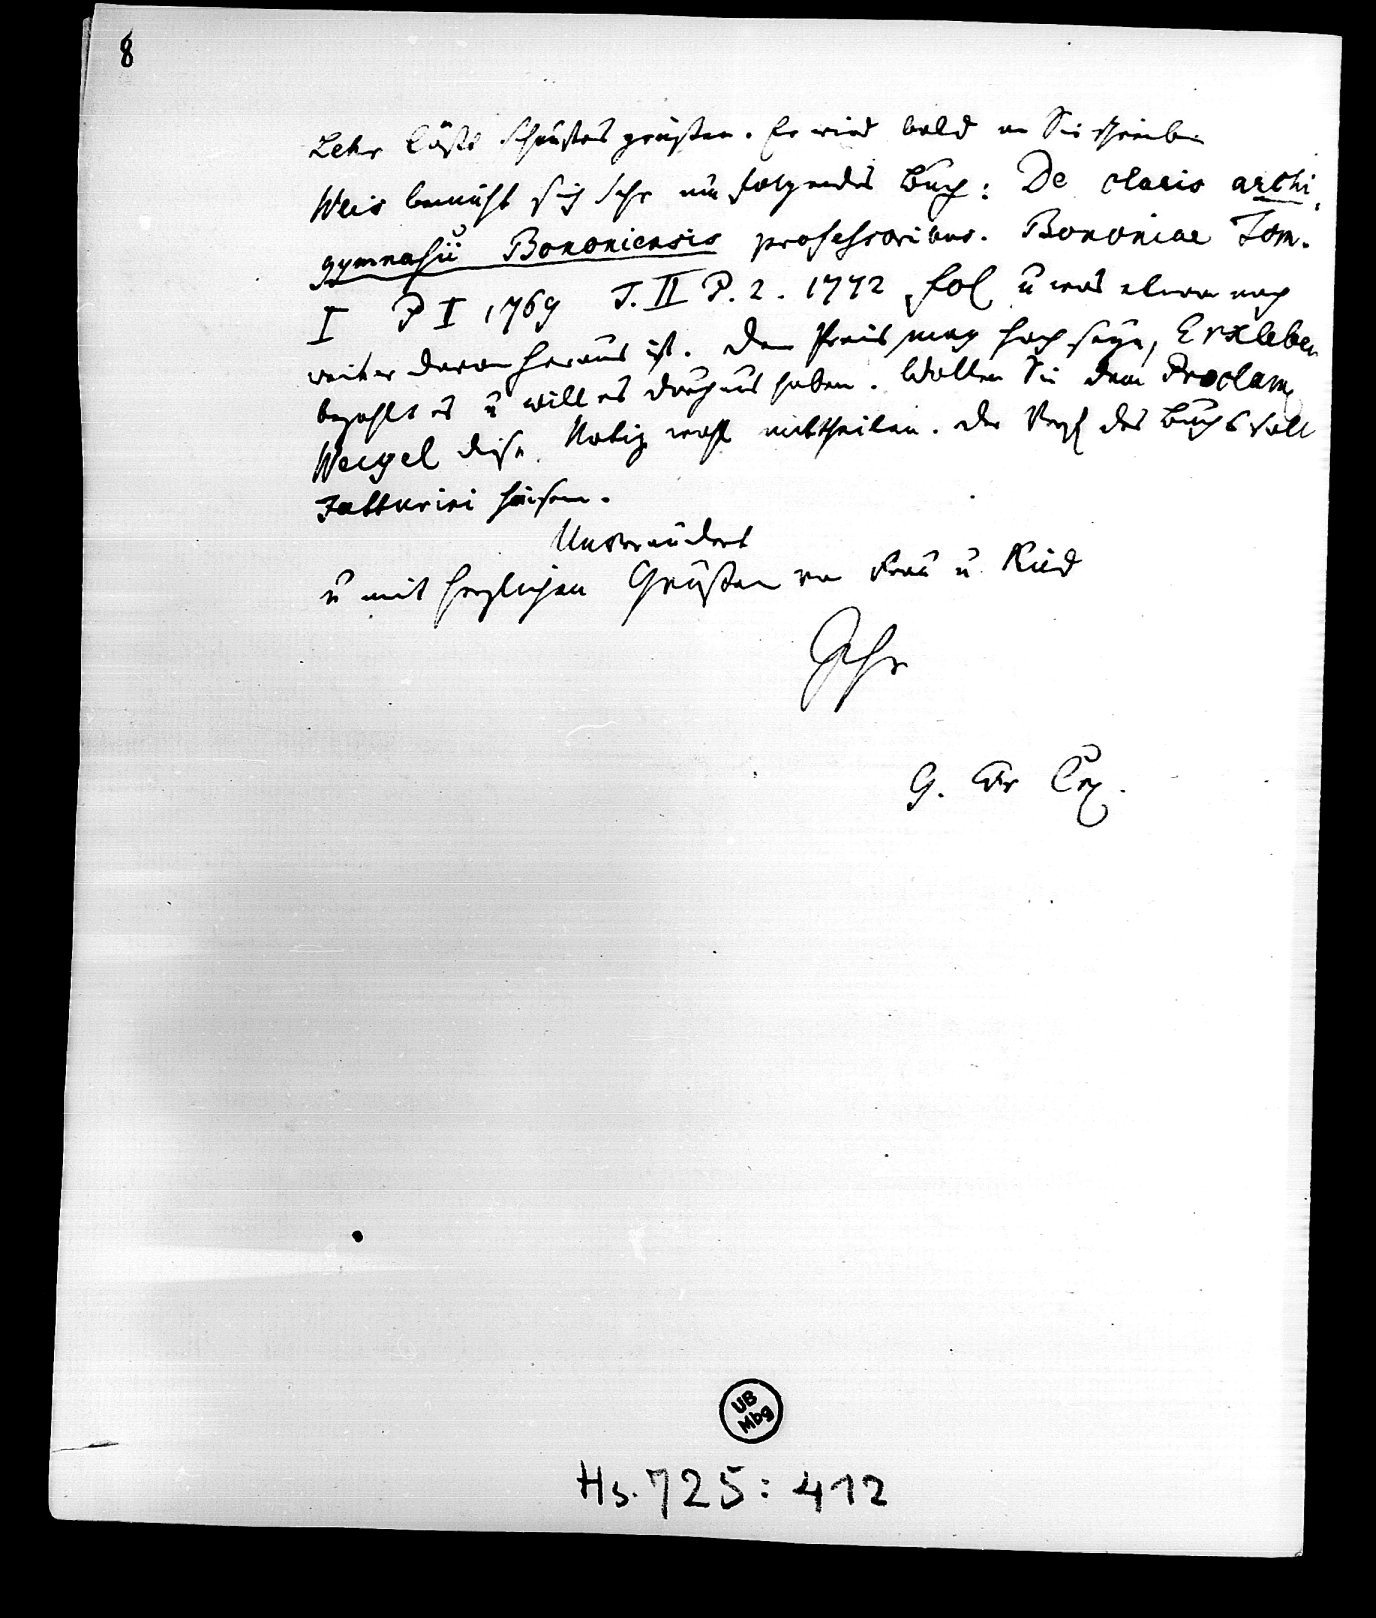 8
Lehr läßt schönstens grüßen. Er wird bald an Sie schreiben
Weis bemüht sich sehr um folgendes Buch: De claris archi,
gymnasii Bononiensis professoribus. Bononiae Tom.
I P I 1769 T. II P. 2. 1772 fol u was etwa noch
weiter davon heraus ist. Der Preis mag hoch seyn, Erxleben
bezahlt es u will es durchaus haben. Wollen Sie dem Proclam
Weigel diese Notiz wohl mittheilen. Der Verf des Buchs soll
Fattorini heißen.
Unverändert
u mit herzlichen Grüßen von Frau u. Kind
Ihr
G. Fr
UB
Mbg
Hs. 725: 412